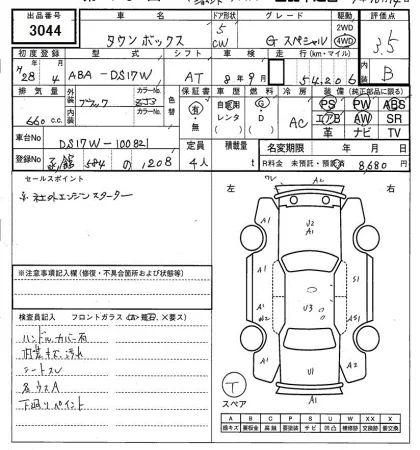 出品番号 車名 ドア形状 グレード 駆動 評価点
3044 タウンボックス 5 CW Gスペシャル 2WD 4WD 3.5
初度登録 型式 シフト 車検 走行(km・マイル)
H28 4 ABA-DS17W AT 8年9月 54,206 B
排気量 外装 カラーNo. 色替 保証書 車歴 燃料 冷房 装備(純正部品に限る)
660 c.c. ブラック ZJ3 有・無 自家用 レンタ ( ) G・D ( ) AC PS PW ABS
内装 カラーNo. エアB AW SR
革 ナビ TV
車台No DS17W-100821 定員 積載量 名変期限 年 月 日
登録No 584 の 1208 4人 t R料金 未預託・預託済 8,680 円
セールスポイント
※社外エンジンスターター
左 右
※注意事項記入欄(修復・不具合箇所および状態等)
検査員記入 フロントガラス
ハンドルカバー有
シートスレ
各ウスA
下廻りペイント
A2
A1
U2
A1
A1
A1
S1
U3
A1
W2
A1
A1
U1
A1
T
スペア
A B C P S U W X XX
線キズ 要板金 腐蝕 要塗装 サビ 凹凸 補修跡 交換跡 要交換